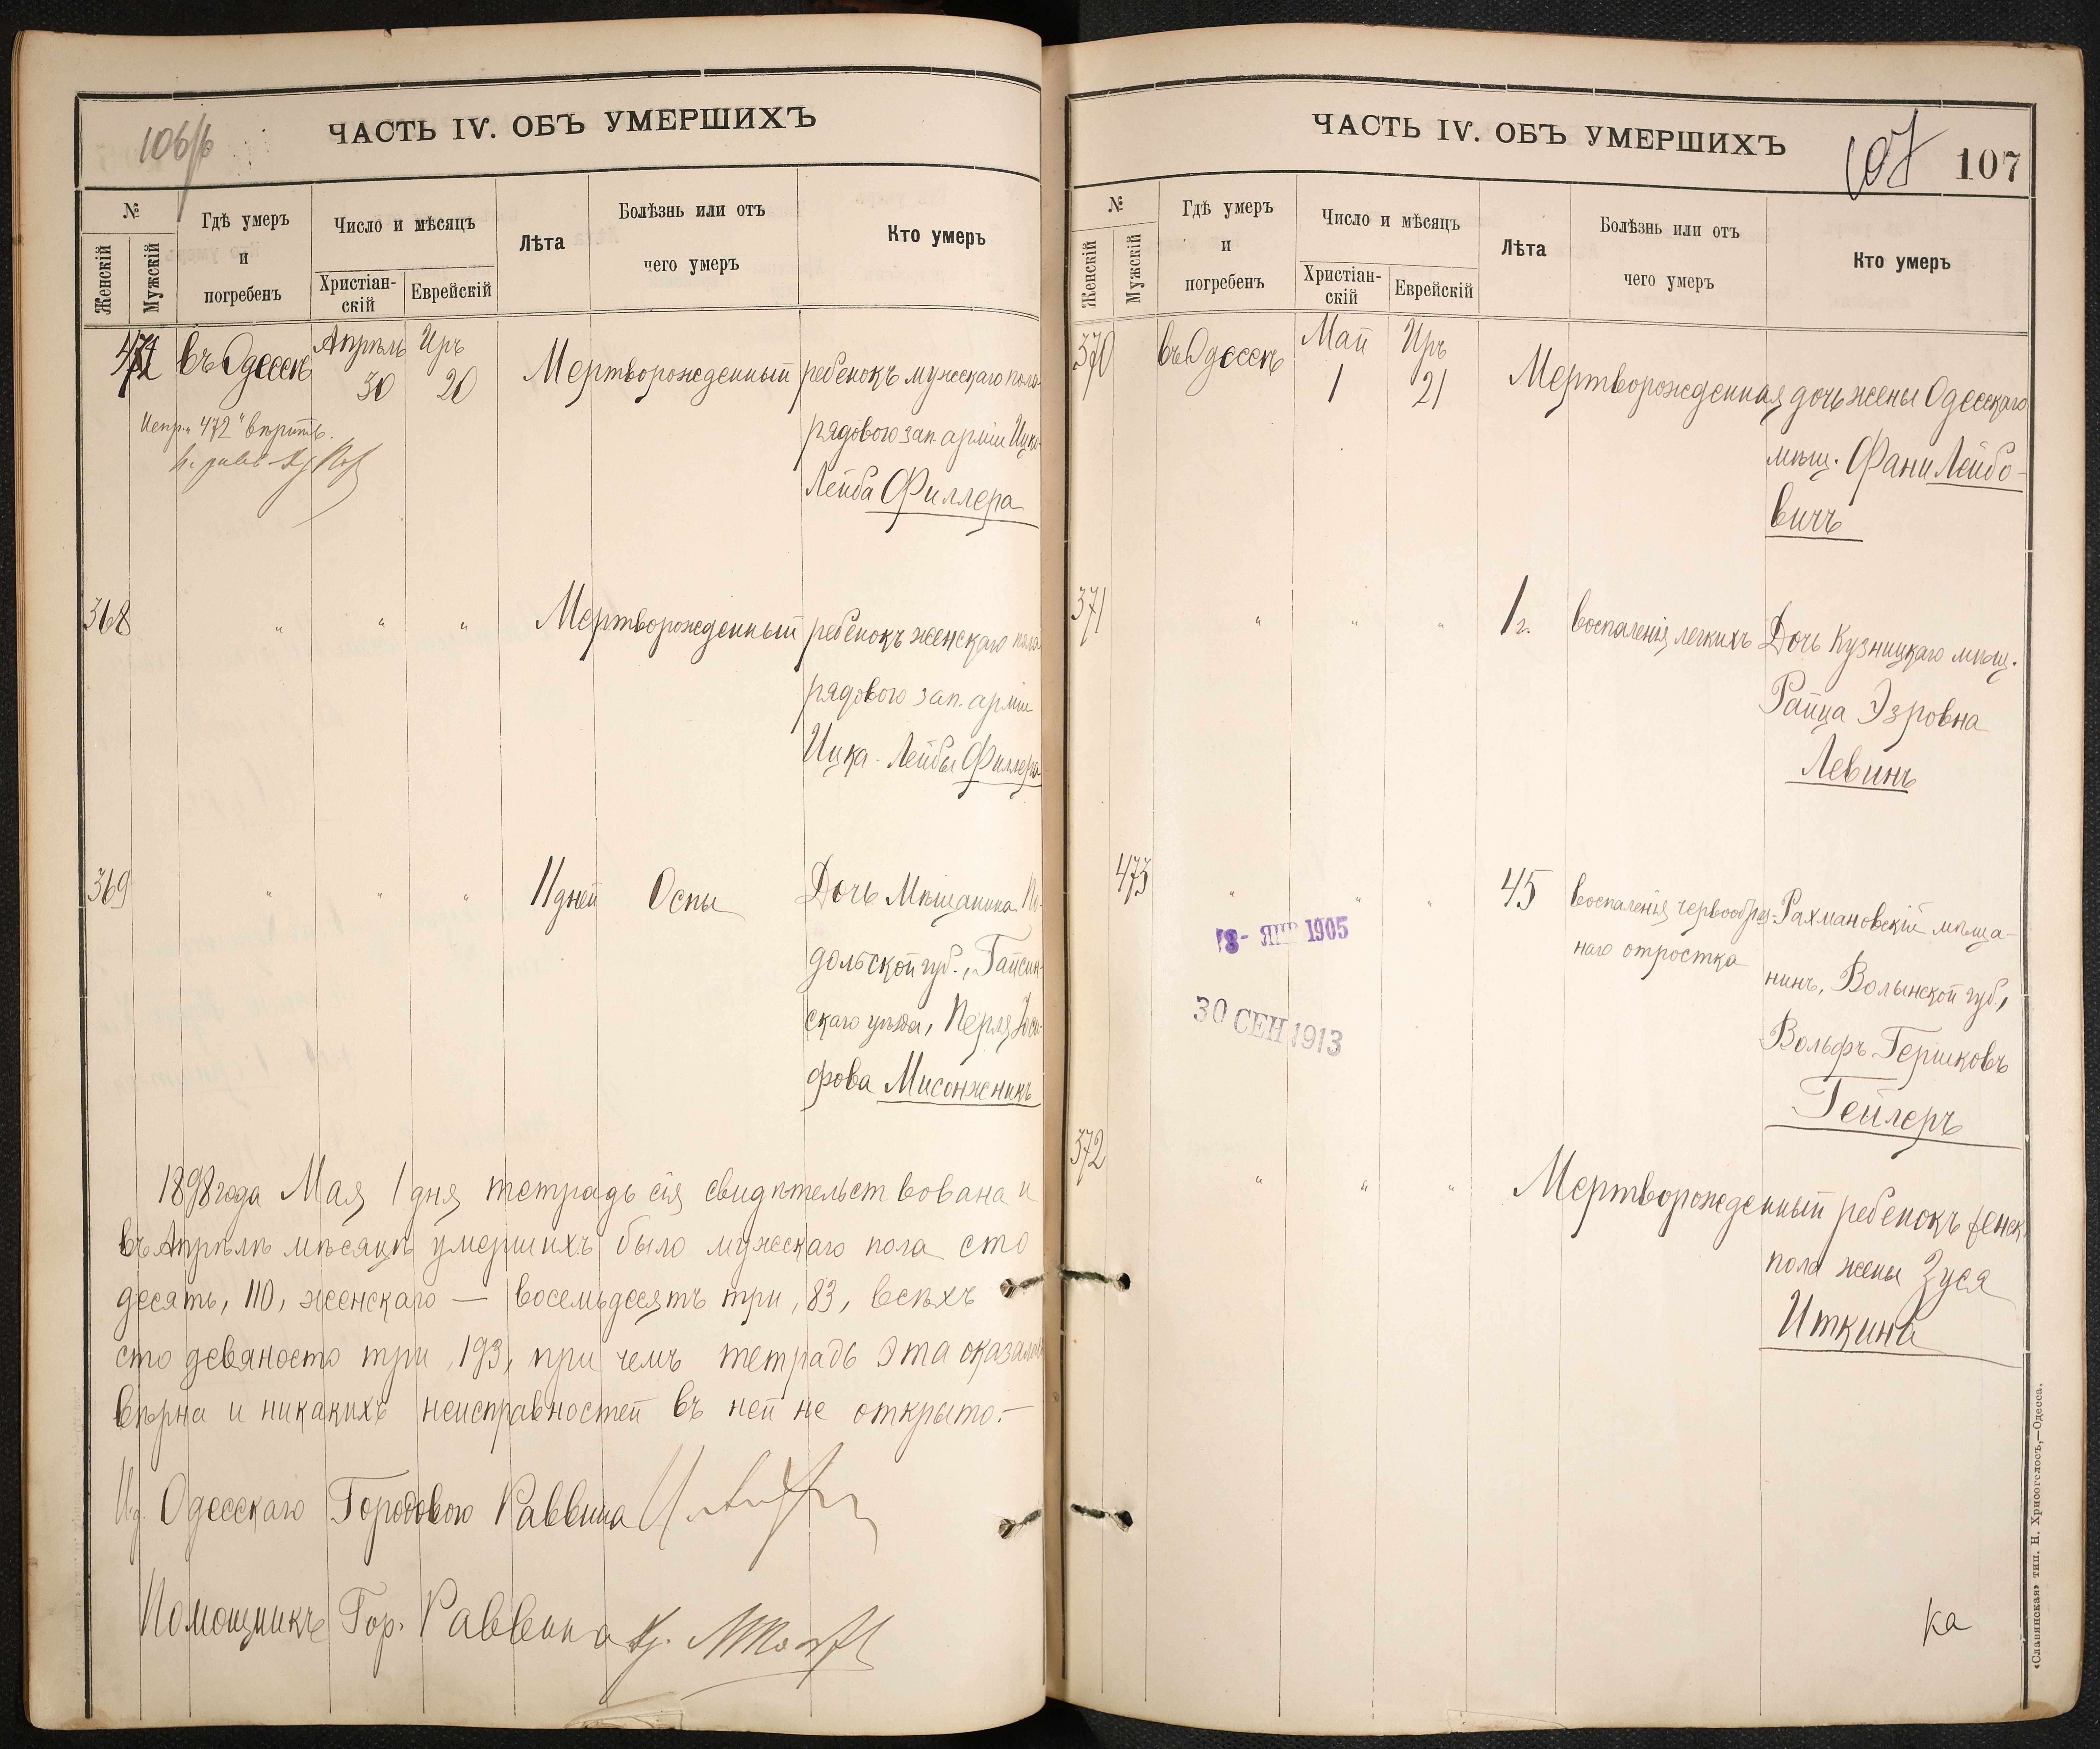 106/б
ЧАСТЬ IV. ОБЪ УМЕРШИХЪ
№
Женскій
Мужскій
Гдѣ умеръ
и
погребенъ
Число и мѣсяцъ
Христіан-
скій
Еврейскій
Лѣта
Болѣзнь или отъ
чего умеръ
Кто умеръ
472 въ Одессѣ Апрѣль Иръ
30 20 Мертворожденный ребенокъ мужскаго пола
рядового зап. арміи Ицко-
Лейба Филлера
Испр. „472“ вѣрить.
368 " " " Мертворожденный ребенокъ женскаго пола
рядового зап. арміи
Ицка-Лейбы Филлера
369 " " " 11 дней Оспы Дочь Мѣщанина По-
дольской губ., Гайсин-
скаго уѣзда, Перля Іоси-
фова Мисонжникъ
1898 года Мая 1 дня тетрадь сія свидѣтельствована и
въ Апрѣлѣ мѣсяцѣ умершихъ было мужскаго пола сто
десять, 110, женскаго — восемьдесятъ три, 83, всѣхъ
сто девяносто три, 193, при чемъ тетрадь эта оказалась
вѣрна и никакихъ неисправностей въ ней не открыто.—
Ид. Одесскаго Городового Раввина
Помощникъ Гор. Раввина
ЧАСТЬ IV. ОБЪ УМЕРШИХЪ
107
107
№
Женскій
Мужскій
Гдѣ умеръ
и
погребенъ
Число и мѣсяцъ
Христіан-
скій
Еврейскій
Лѣта
Болѣзнь или отъ
чего умеръ
Кто умеръ
370 въ Одессѣ Май Иръ
1 21 Мертворожденная дочь жены Одесскаго
мѣщ. Фани Лейбо-
вичъ
371 " " " 1 г. воспаленія легкихъ Дочь Кузницкаго мѣщ.
Райца Эзровна
Левинъ
473 " " " 45 воспаленія червообраз- Рахмановскій мѣща-
наго отростка нинъ, Волынской губ.,
Вольфъ Гершковъ
Гейлеръ
8- ЯНВ 1905
30 СЕН 1913
372 " " " Мертворожденный ребенокъ женск.
пола жены Зуся
Иткина
ка
«Славянская» тип. Н. Хрисогелосъ,—Одесса.